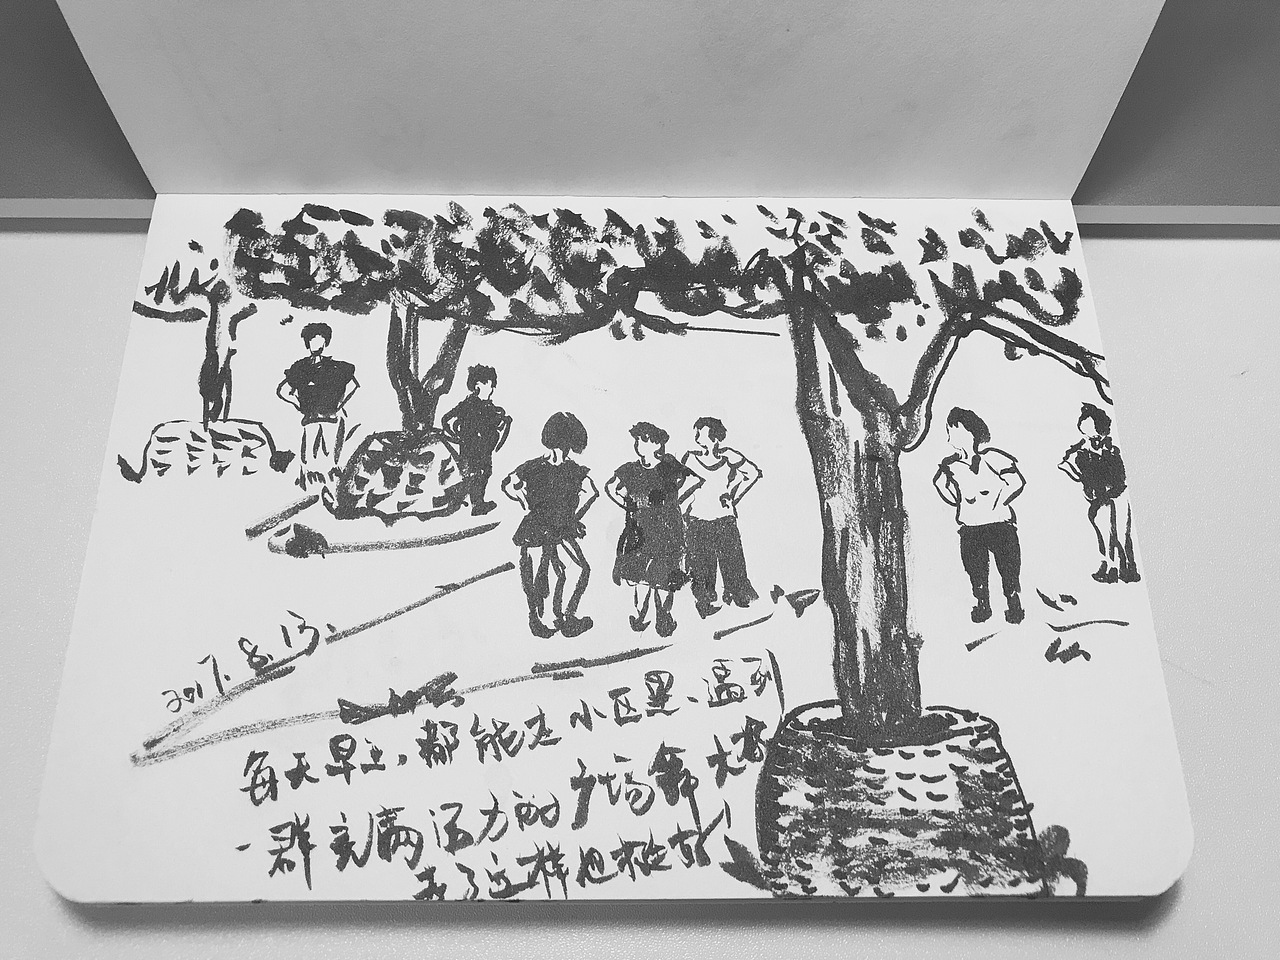 2017.8.13.
每天早上，都能在小区里、遇到
一群充满活力的广场舞大妈
老了这样也挺好！